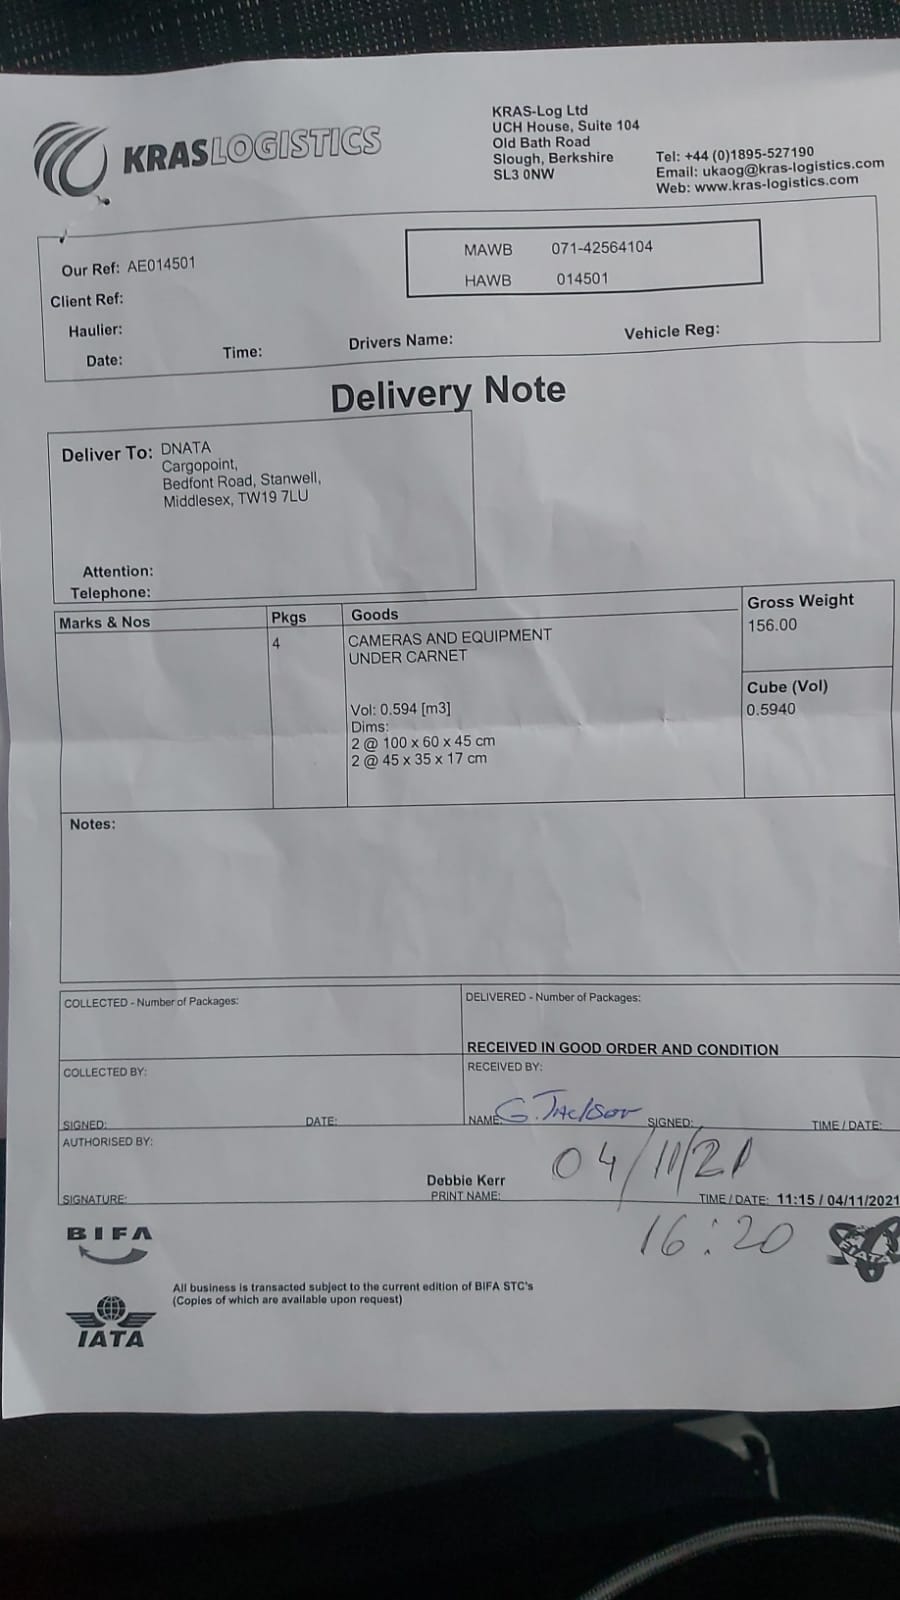 KRASLOGISTICS
KRAS-Log Ltd
UCH House, Suite 104
Old Bath Road
Slough, Berkshire
SL3 0NW
Tel: +44 (0)1895-527190
Email: ukaog@kras-logistics.com
Web: www.kras-logistics.com
Our Ref: AE014501
Client Ref:
Haulier:
Date: Time: Drivers Name: Vehicle Reg:
MAWB 071-42564104
HAWB 014501
Delivery Note
Deliver To: DNATA
Cargopoint,
Bedfont Road, Stanwell,
Middlesex, TW19 7LU
Attention:
Telephone:
Marks & Nos Pkgs Goods Gross Weight
4 CAMERAS AND EQUIPMENT 156.00
UNDER CARNET
Cube (Vol)
Vol: 0.594 [m3] 0.5940
Dims:
2 @ 100 x 60 x 45 cm
2 @ 45 x 35 x 17 cm
Notes:
COLLECTED - Number of Packages: DELIVERED - Number of Packages:
RECEIVED IN GOOD ORDER AND CONDITION
COLLECTED BY: RECEIVED BY:
SIGNED: DATE: NAME: G. Jackson SIGNED: TIME / DATE:
AUTHORISED BY: 04/11/21
Debbie Kerr
SIGNATURE: PRINT NAME: TIME / DATE: 11:15 / 04/11/2021
16:20
BIFA
All business is transacted subject to the current edition of BIFA STC's
(Copies of which are available upon request)
IATA